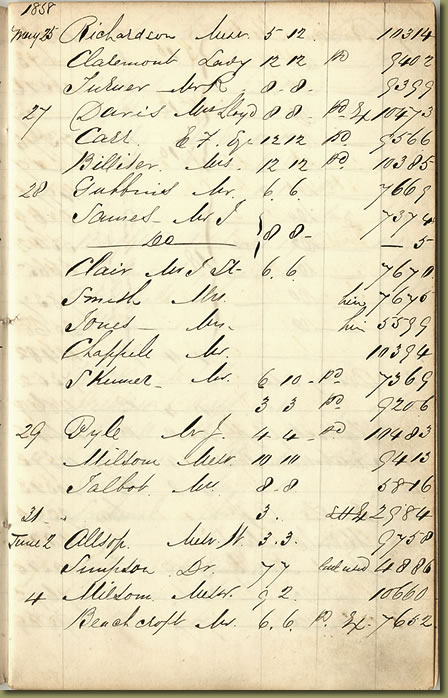 1858
May 25 Richardson Messr. 5 12. 10314
Claremont Lady 12 12 pd 9402
Turner — Mr R 8 - 8 - 9399
27 Davis Mrs Lloyd 8 8 - pd Ex 10473
Carr. E F. Eqe 12 12 pd. 9566
Billiter. Mrs. 12 12 pd. 10385
28 Gubbins Mr. 6. 6. 7669
James — Mr J 7374
Do 8 8 - — 5 -
Clair Mr J St - 6. 6 7670
Smith Mrs. hire 7675
Jones — Mrs. hire 5599
Chappell Mr. 10394
Skinner — Mr. 6 10 - pd. 7369
3 3 pd. 9206
29 Pyle Mr J. 4 4 - pd 10483
Milsom Messr. 10 10 9413
Talbot. Mr. 8 - 8 5816
31 - . 3 . 2984
June 2 Allsop. Messr W. 3. 3. 9758
Simpson Dr. 7 7 4886
4 Milsom Messr. 9 2. 10660
Beachcroft Mr. 6. 6. P. Ex. 7652